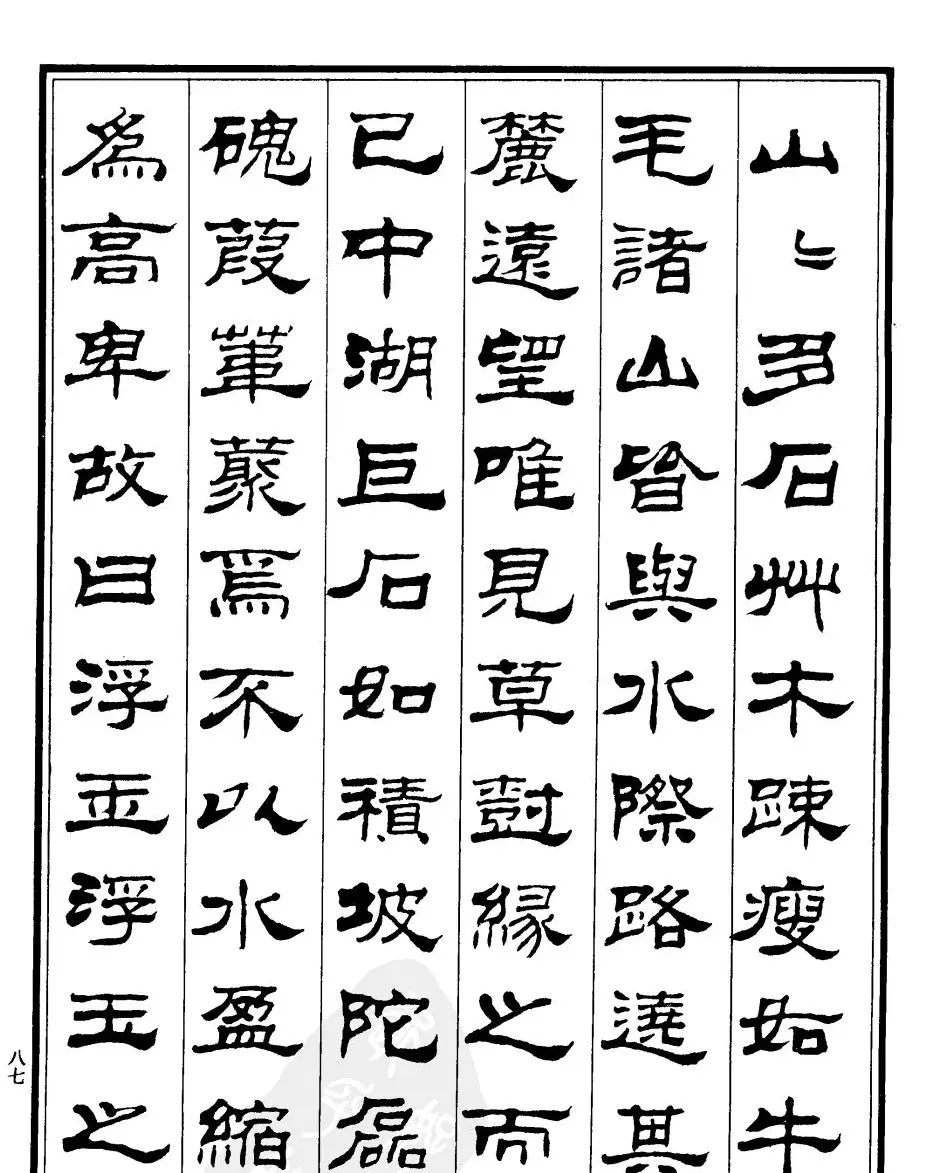 山〻多石艸木疎瘦如牛
毛諸山皆與水際路遶其
麓遠望唯見草樹緣之而
已中湖巨石如積坡陀磊
磈葭葦叢焉不以水盈縮
為高卑故曰浮玉浮玉之
八七